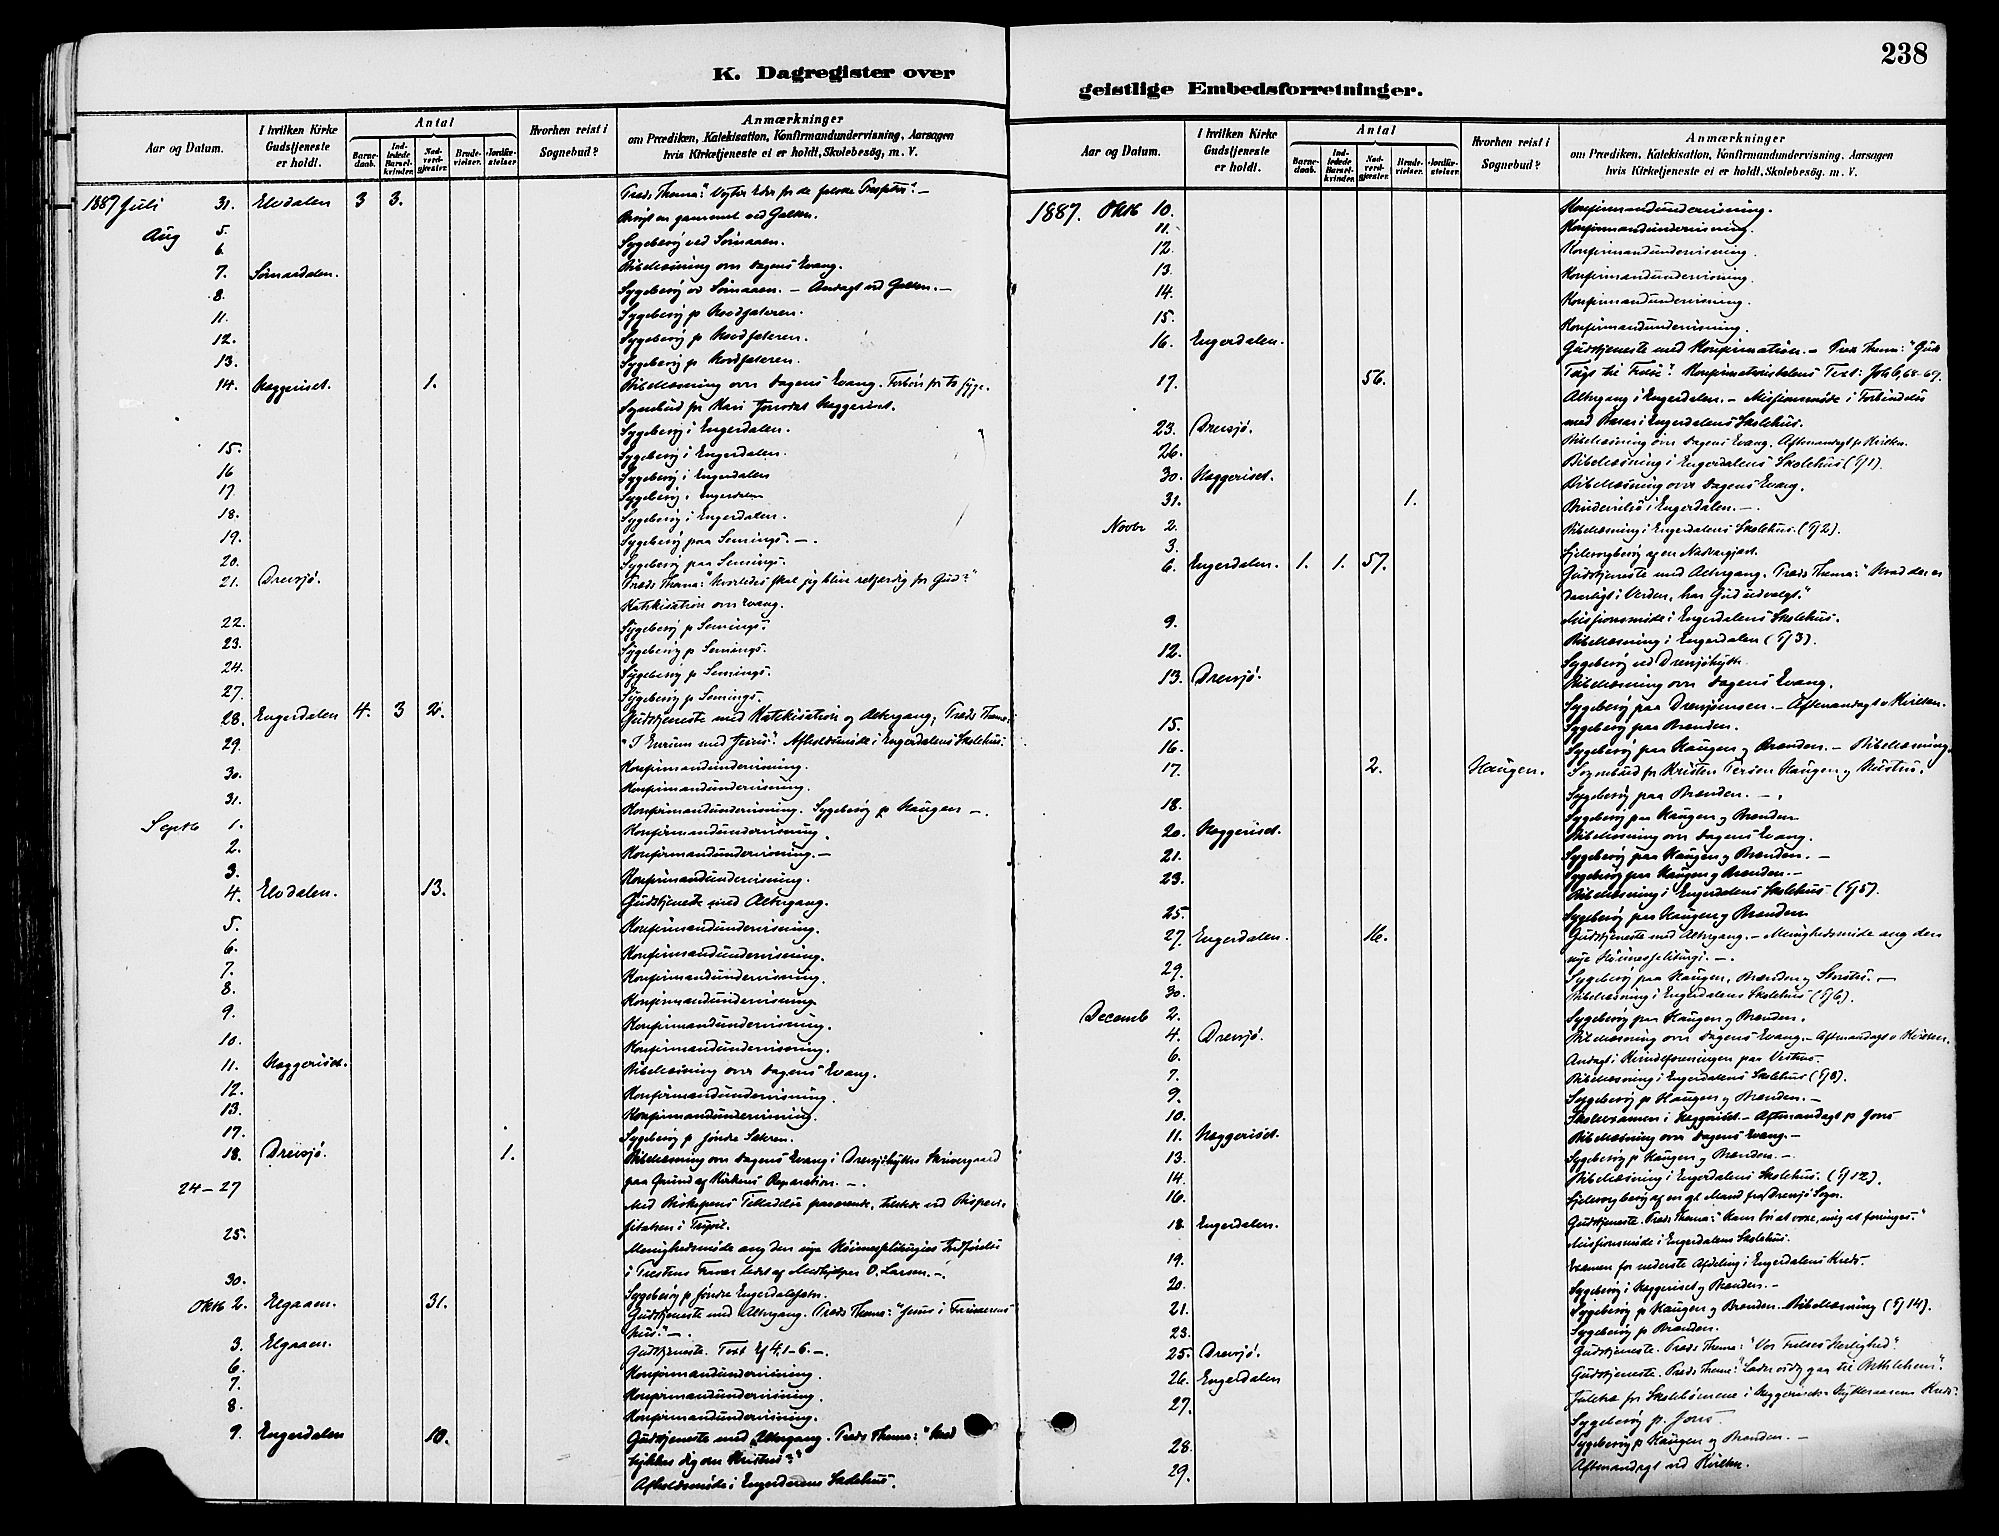 238
K. Dagregister over
geistlige Embedsforretninger.
Aar og Datum.
I hvilken Kirke Gudstjeneste er holdt.
Antal
Barnedaab.
Indledede Barselkvinder.
Nadverdgjester.
Brudevielser.
Jordfæstelser.
Hvorhen reist i Sognebud?
Anmærkninger
om Prædiken, Katekisation, Konfirmandundervisning, Aarsagen
hvis Kirketjeneste ei er holdt, Skolebesøg, m. V.
1887 Juli 31. Elvdalen 3 3. Præd. Thema: "Vogter Eder for de falske Profeter".-
Aug 5. Besøgt en gammel ved Galten.
6. Sygebesøg ved Sømaaen.
7. Sømaadalen. Bibellæsning over Dagens Evang.
8. Sygebesøg ved Sømaaen. - Andagt ved Galten. -
11. Sygebesøg p
12. Sygebesøg p
13. Sygebesøg p
14. Heggeriset. 1. Bibellæsning over Dagens Evang. Forbøn for to syge.
Sognebud for Kari Heggeriset.
Sygebesøg i Engerdalen.
15. Sygebesøg i Engerdalen.
16 Sygebesøg i Engerdalen
17. Sygebesøg i Engerdalen
18. Sygebesøg i Engerdalen.
19. Sygebesøg paa Sennings. -.
20. Sygebesøg paa Sennings.
21. Drevsjø. Præds Thema: "Hvorledes skal jeg blive retfærdig for Gud?"
Katekisation over Evang.
22. Sygebesøg p Sennings.
23. Sygebesøg p Sennings.
24. Sygebesøg p Sennings.
27. Sygebesøg p Sennings.
28. Engerdalen 4. 3 2. Gudstjeneste med Katekisation og Altergang; Præds Thema:
29. "I Enrum med Jesus". Afholdsmøde i Engerdalens Skolehus.
Konfirmandundervisning.
30. Konfirmandundervisning.
31. Konfirmandundervisning. Sygebesøg p Haugen -.
Septb 1. Konfirmandundervisning.
2. Konfirmandundervisning. -
3. Konfirmandundervisning.
4. Elvdalen. 13. Gudstjeneste med Altergang.
5. Konfirmandundervisning.
6. Konfirmandundervisning.
7. Konfirmandundervisning.
8. Konfirmandundervisning
9. Konfirmandundervisning.
10. Konfirmandundervisning.
11. Heggeriset. Bibellæsning over Dagens Evang.
12. Konfirmandundervisning.
13. Konfirmandundervisning.
17. Sygebesøg p søndre Sætren.
18. Drevsjø. 1. Bibellæsning over Dagens Evang i Drevsjøhyttes Skrivergaard
paa Grund af Kirkens Reparation. -.
24-27 Med Biskopens Tilladelse
i Trysil.
25. Menighedsmøde ang den nye
i Præstens Fravær ledet af Medhjælper O. Larsen. -.
30. Sygebesøg p søndre
Oktb 2. Elgaaen. 31. Gudstjeneste med Altergang. Præds Thema: "Jesus i Farisæerens
Hus." -.
3. Elgaaen. Gudstjeneste. Text Ef 4.1-6. -.
6. Konfirmandundervisning.
7. Konfirmandundervisning.
8. Konfirmandundervisning.
9. Engerdalen 10. Gudstjeneste med Altergang. Præds Thema: "Hvad
tykkes dig om Kristus?"
Afholdsmøde i Engerdalens Skolehus.
Aar og Datum.
I hvilken Kirke Gudstjeneste er holdt.
Antal
Barnedaab.
Indledede Barselkvinder.
Nadverdgjester.
Brudevielser.
Jordfæstelser.
Hvorhen reist i Sognebud?
Anmærkninger
om Prædiken, Katekisation, Konfirmandundervisning, Aarsagen
hvis Kirketjeneste ei er holdt, Skolebesøg, m. V.
1887. Oktb 10. Konfirmandundervisning.
11. Konfirmandundervisning.
12. Konfirmandundervisning.
13. Konfirmandundervisning.
14. Konfirmandundervisning.
15. Konfirmandundervisning.
16. Engerdalen. Gudstjeneste med Konfirmation. - Præds Thema: "Guds
Text: Joh 6, 68-69.
17. 56. Altergang i Engerdalen. - Missionsmøde i Forbindelse
med Basar i Engerdalens Skolehus.
23. Drevsjø. Bibellæsning over Dagens Evang. Aftenandagt p Kvilten.
26. Bibellæsning i Engerdalens Skolehus (Gj 1).
30. Heggeriset. Bibellæsning over Dagens Evang.
31. 1. Brudevielse i Engerdalen. -.
Novbr 2. Bibellæsning i Engerdalens Skolehus. (Gj 2).
3. Sjelesorgbesøg af en Nadvergjæst.
6. Engerdalen. 1. 1. 57. Gudstjeneste med Altergang. Præds Thema: "Hvad der er
daarligt i Verden, har Gud udvalgt."
9. Missionsmøde i Engerdalens Skolehus.
Bibellæsning i Engerdalen (Gj 3).
12. Sygebesøg ved Drevsjøhytte
13. Drevsjø. Bibellæsning over Dagens Evang.
Sygebesøg paa Drevsjømoen. - Aftenandagt v Kvilten.
15. Sygebesøg paa Brænden.
16. Sygebesøg paa Haugen og Brænden. - Bibellæsning.
17. 2. Haugen. Sognebud for Kristen Persen Haugen og Hustru.
Sygebesøg paa Brænden. -.
18. Sygebesøg paa Haugen og Brænden
20. Heggeriset. Bibellæsning over Dagens Evang.
21. Sygebesøg paa Haugen og Brænden. -
23. Sygebesøg paa Haugen og Brænden. -
Bibellæsning i Engerdalens Skolehus (Gj 5).
25. Sygebesøg paa Haugen og Brænden
27. Engerdalen. 16. Gudstjeneste med Altergang. - Menighedsmøde ang den
nye
29. Sygebesøg paa Haugen, Brænden og
30. Bibellæsning i Engerdalens Skolehus (Gj 6).
Decemb 2. Sygebesøg paa Haugen og Brænden.
4. Drevsjø. Bibellæsning over Dagens Evang. - Aftenandagt v Kvilten.
6. Andagt i Kvindeforeningen paa
7. Bibellæsning i Engerdalens Skolehus (Gj 8).
9. Sygebesøg p Haugen og Brænden. -
10. Skoleexamen i Heggeriset. - Aftenandagt p Jons
11. Heggeriset. Bibellæsning over Dagens Evang. -
13. Sygebesøg p Haugen og Brænden. -
14. Bibellæsning i Engerdalens Skolehus. (Gj 12).
16. Sjelesorgbesøg af en gl. Mand fra Drevsjø Sogn.
18. Engerdalen. Gudstjeneste. Præds Thema: "Ham bør at voxe, mig at forringes."
Missionsmøde i Engerdalens Skolehus.
19. Examen for nederste Afdeling i Engerdalens Kreds.
20. Sygebesøg i Heggeriset og Brænden. -
21. Sygebesøg p Haugen og Brænden. Bibellæsning (Gj 14).
23. Sygebesøg p Brænden.
25. Drevsjø. Gudstjeneste. Præds Thema: "Vor Frelses Herlighed".
26. Engerdalen Gudstjeneste. Præds Thema: "Lader os dog gaa til Bethlehem".
27. Juletræ for Skolebørnene i Heggeriset Kreds.
Sygebesøg p. Jons.
28. Sygebesøg p Haugen og Brænden. -
29. Aftenandagt ved Kvilten.